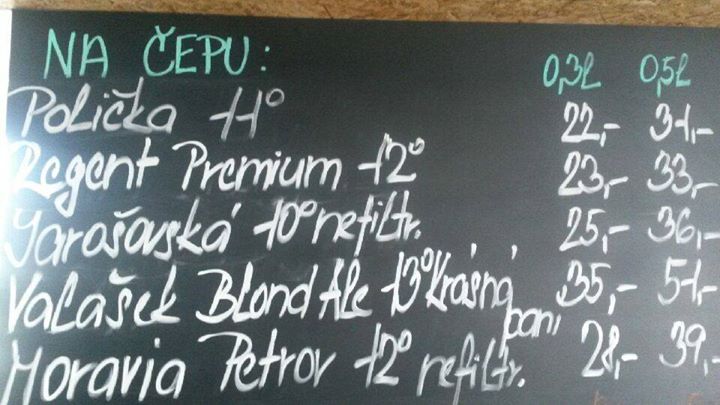 NA ČEPU: 0,3l 0,5l
Polička 11° 22,- 31,-
Regent Premium 12° 23,- 33,-
Jarošovská 10° nefiltr. 25,- 36,-
Valašek Blond Ale 13° Krásná 35,- 51,-
paní
Moravia Petrov 12° nefiltr. 28,- 39,-